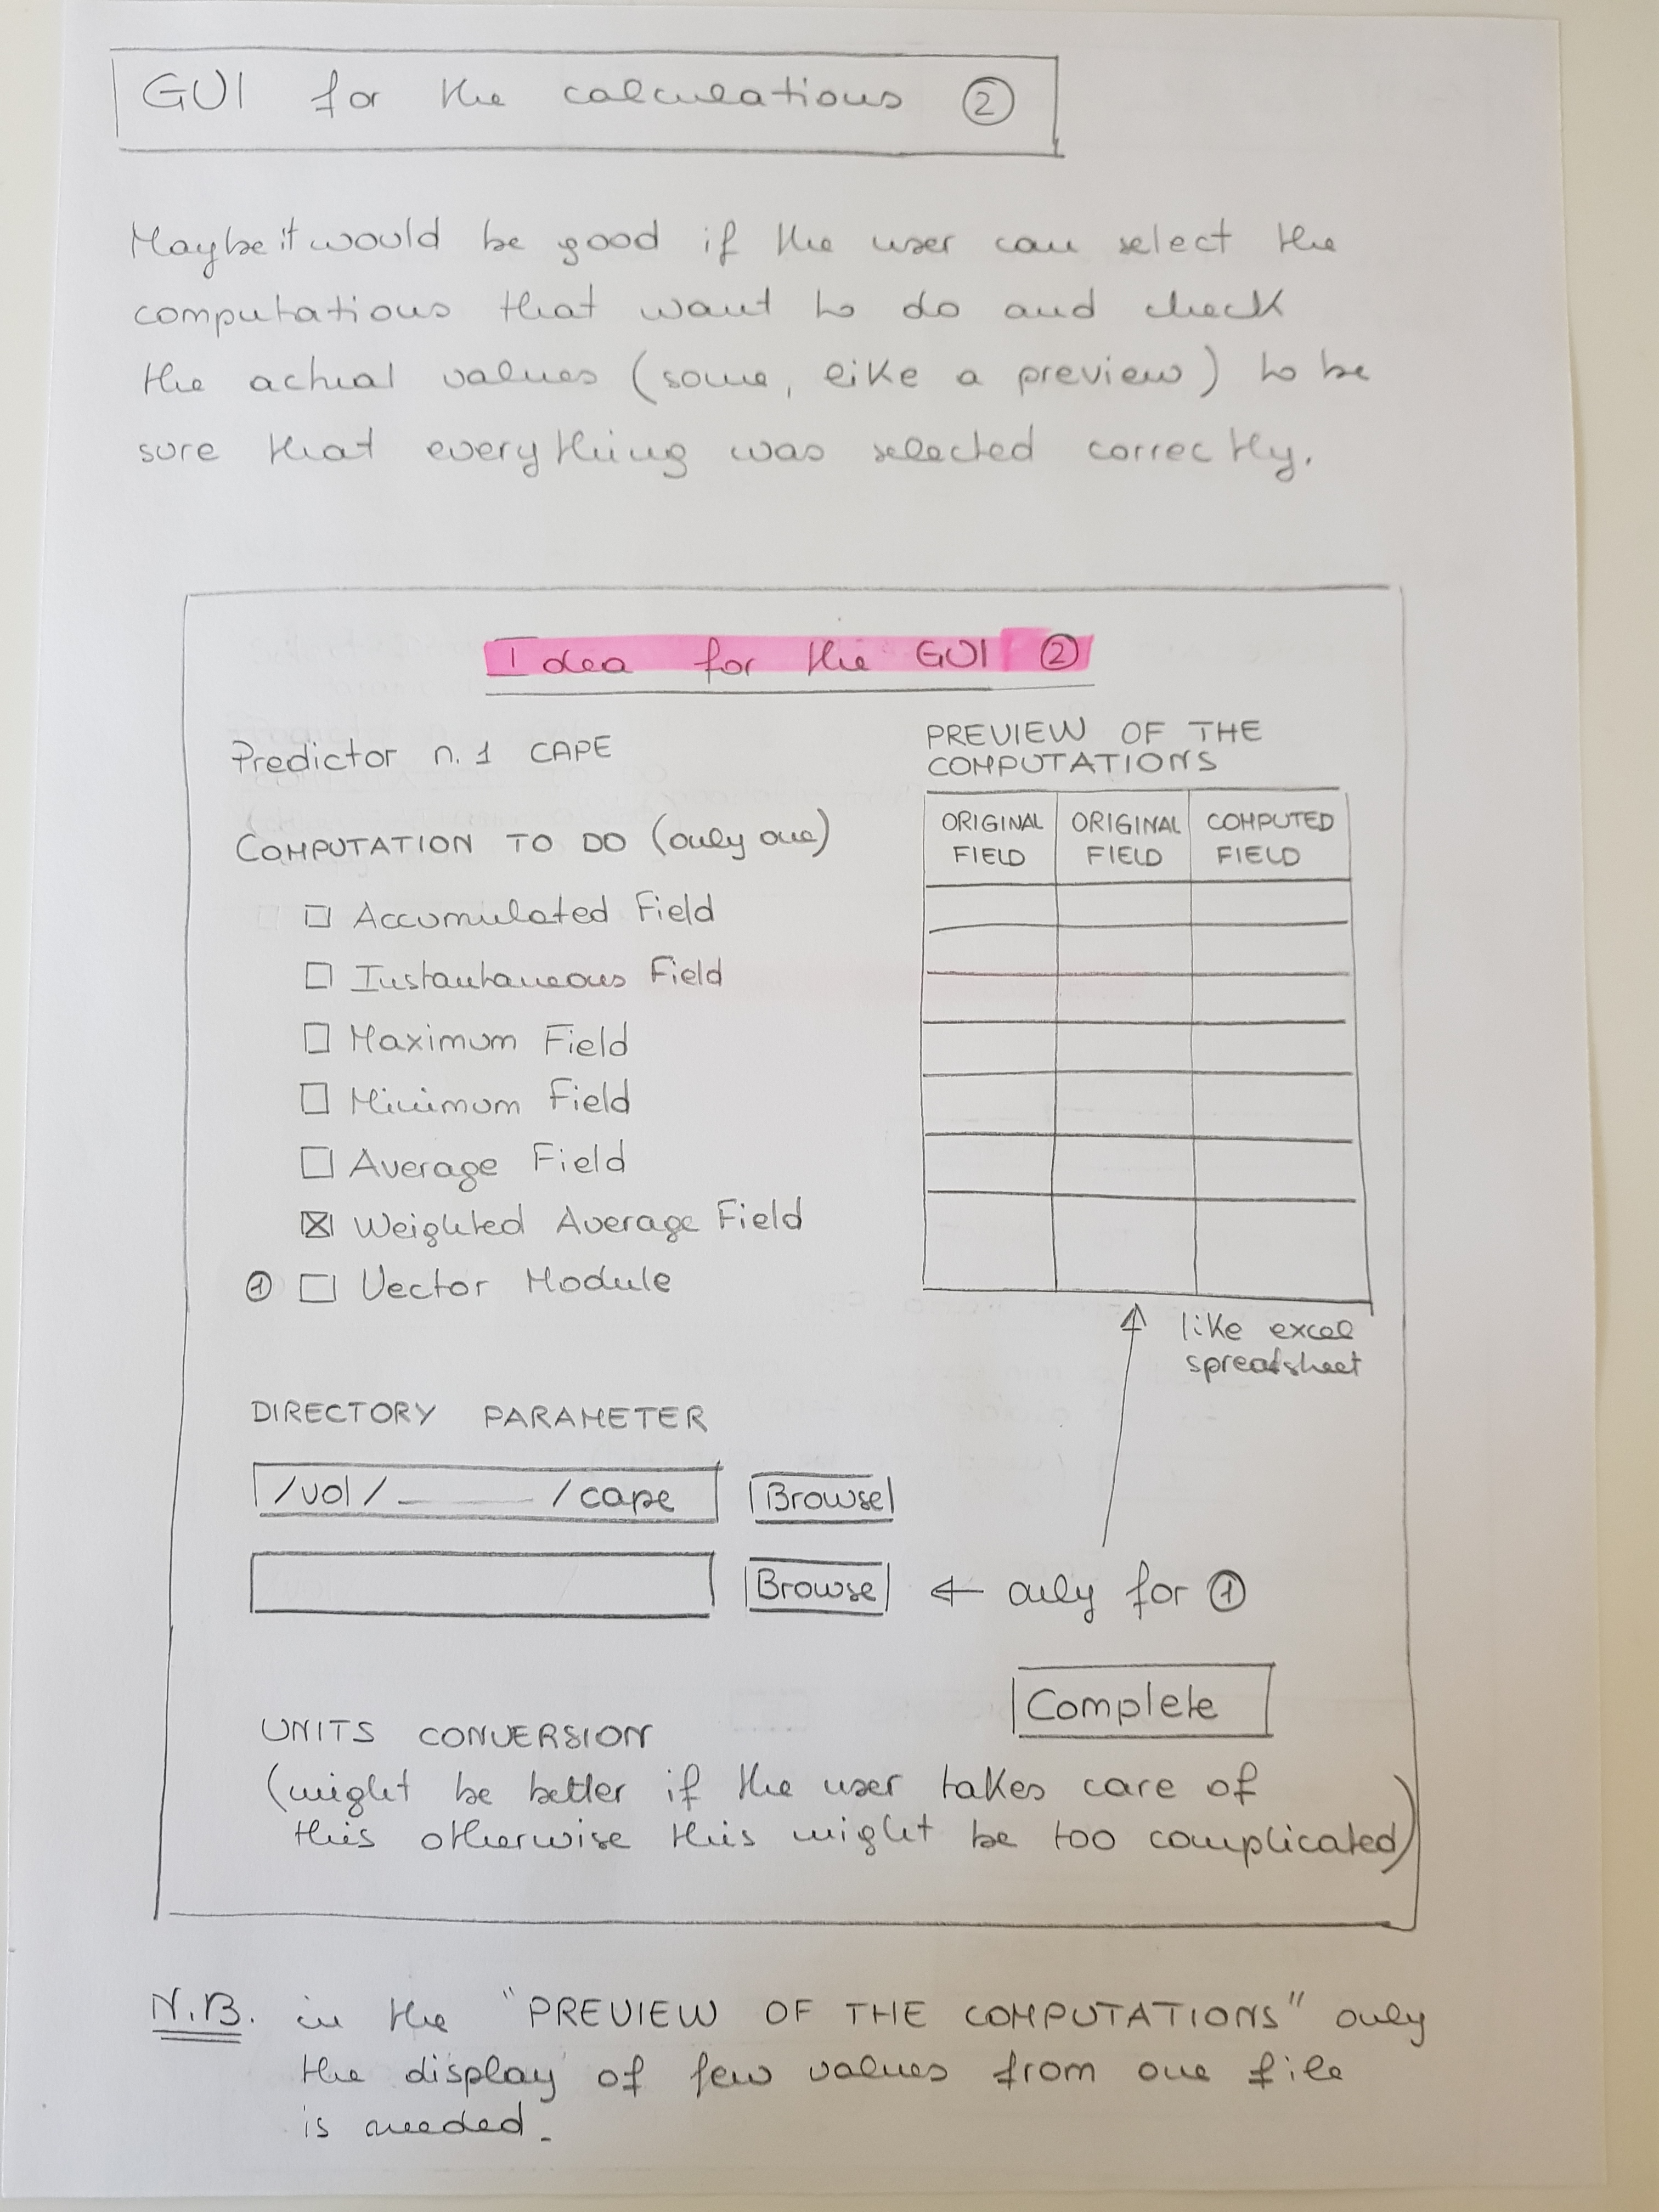 GUI for the calculations ②
Maybe it would be good if the user can select the
computations that want to do and check
the actual values (some, like a preview) to be
sure that everything was selected correctly.
Idea for the GUI ②
Predictor n. 1 CAPE
COMPUTATION TO DO (only one)
☐ Accumulated Field
☐ Instantaneous Field
☐ Maximum Field
☐ Minimum Field
☐ Average Field
☒ Weighted Average Field
① ☐ Vector Module
PREVIEW OF THE
COMPUTATIONS
ORIGINAL FIELD ORIGINAL FIELD COMPUTED FIELD
like excel
spreadsheet
DIRECTORY PARAMETER
/vol/______/cape Browse
Browse ← only for ①
Complete
UNITS CONVERSION
(might be better if the user takes care of
this otherwise this might be too complicated)
N.B. in the "PREVIEW OF THE COMPUTATIONS" only
the display of few values from one file
is needed.